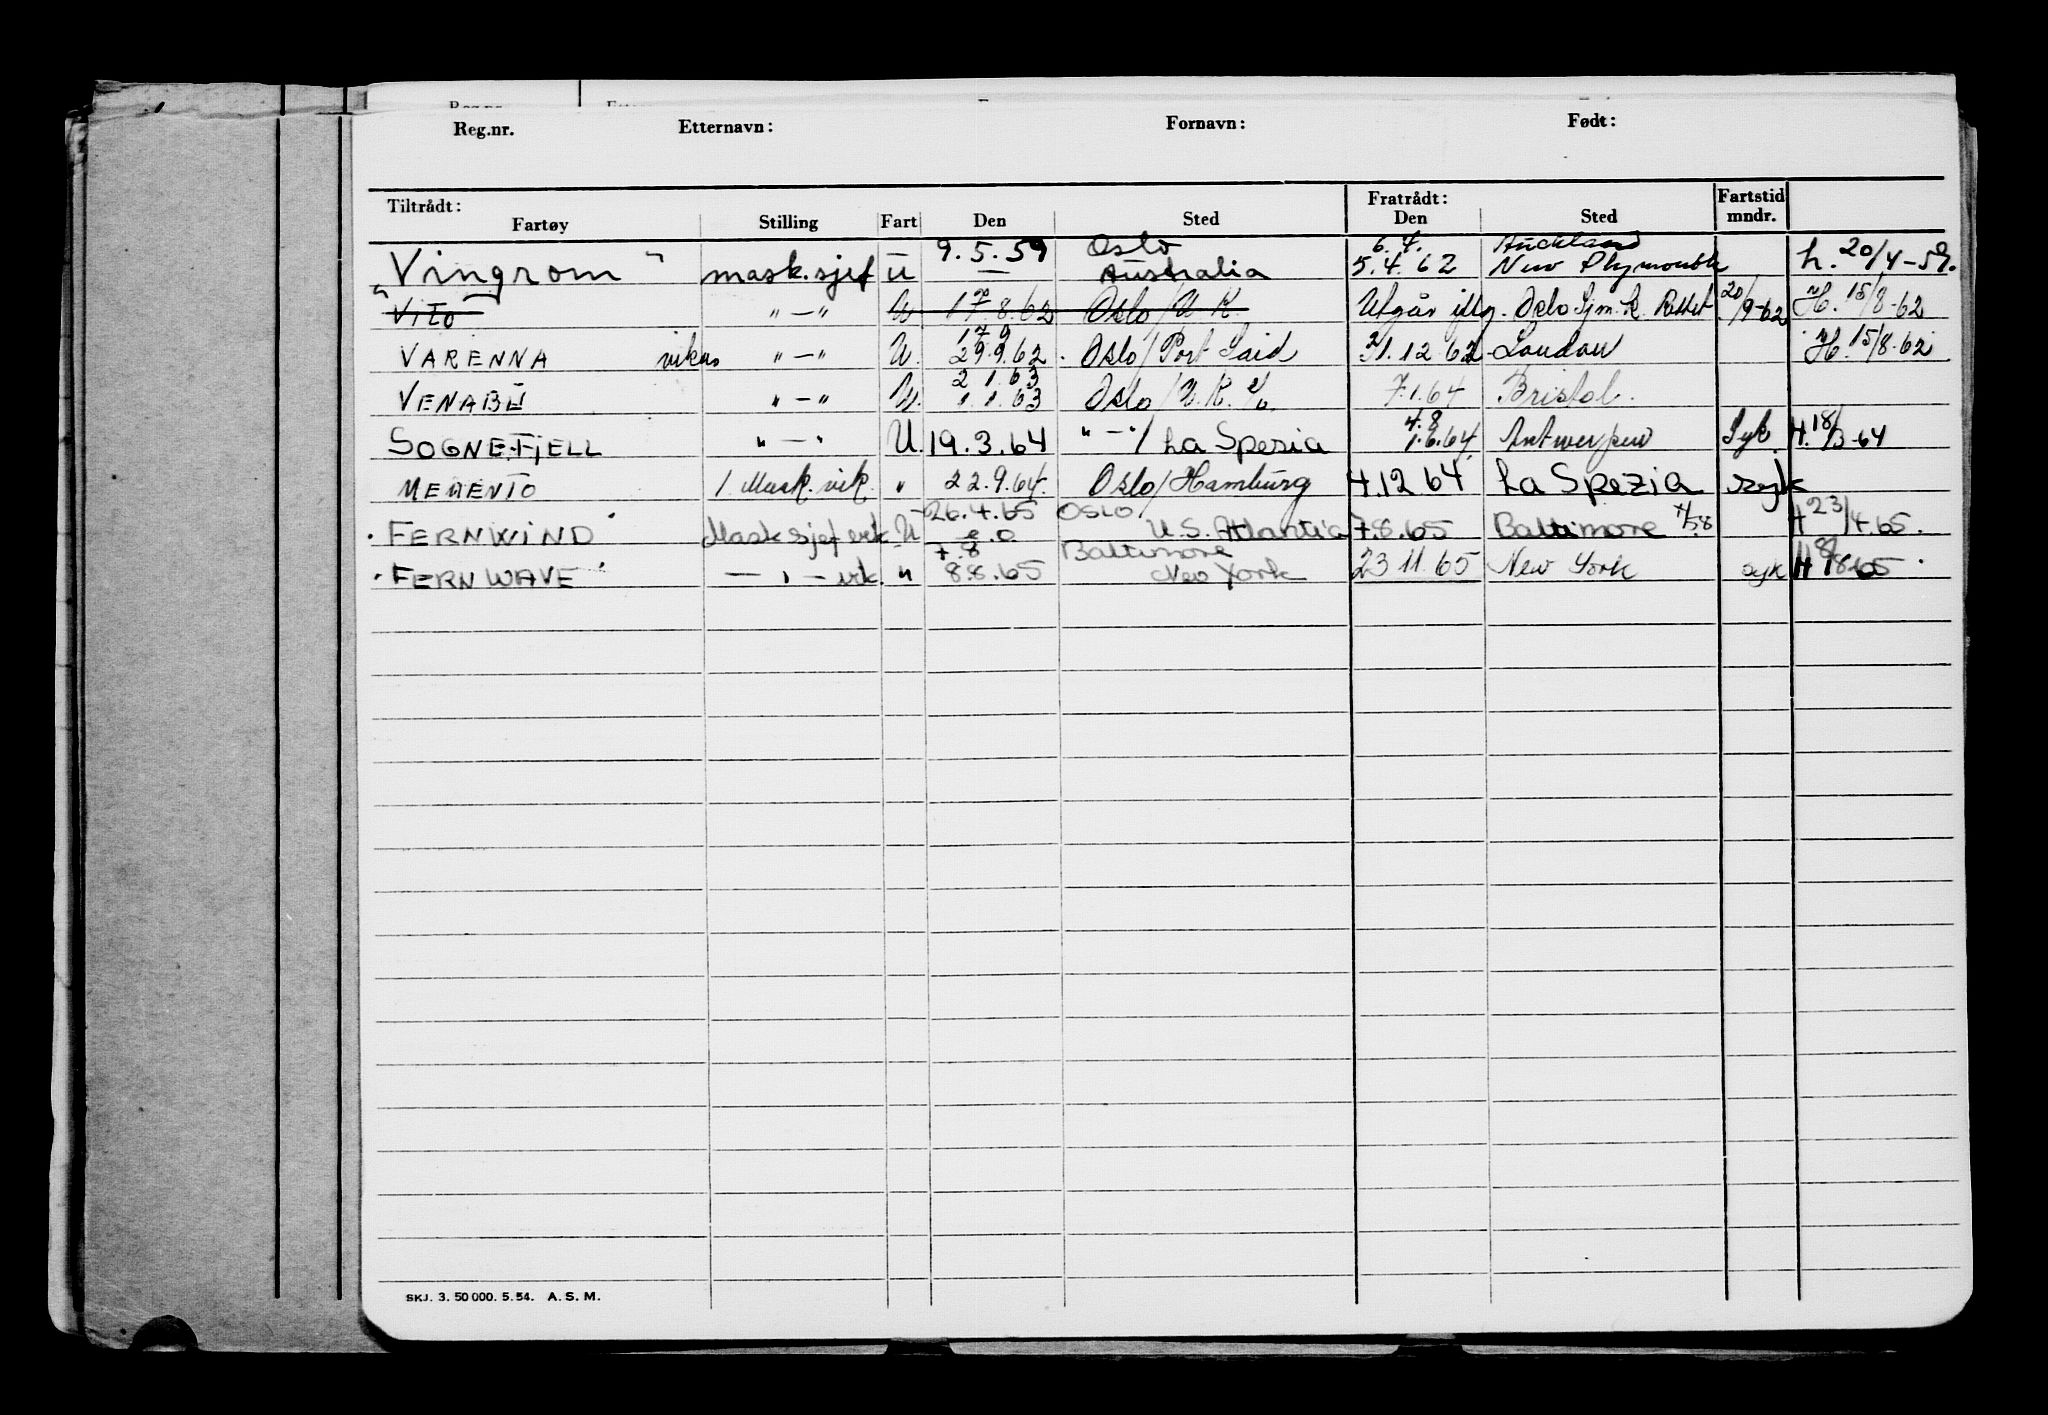 Reg.nr. Etternavn: Fornavn: Født:
Tiltrådt: Fratrådt: Fartstid
Fartøy Stilling Fart Den Sted Den Sted mndr.
9.5.59 Oslo 6.4. Auckland
"Vingrom" mask.sjef U — Australia 5.4.62 New Plymouth h. 20/4-59.
"Vito" "—" U 17.8.62 Oslo/U.K. Utgår iflg. Oslo Sjm.k. Rettet 20/9-62 H. 15/8-62
17 9
VARENNA vikar "—" U. 29.9.62. Oslo/Port Said 31.12.62 London H. 15/8-62
2 1.63
VENABU "—" U. 1.1.63 Oslo/U.K. 7.1.64 Bristol.
4.8
SOGNEFJELL "—" U. 19.3.64 "—"/La Spezia 1.6.64 Antwerpen Syk. H. 18/3-64
MEMENTO 1 Mask. vik. " 22.9.64. Oslo/Hamburg 4.12 64 La Spezia syk
26.4.65 OSLO
"FERNWIND" Mask sjef vik U e.o U.S. Atlantic 7.8.65 Baltimore H 23/4.65.
7.8 Baltimore
"FERNWAVE" — " — vik. " 8.8.65 New York 23 11.65 New York syk H 8/8 65
SKJ. 3. 50 000. 5. 54. A. S. M.